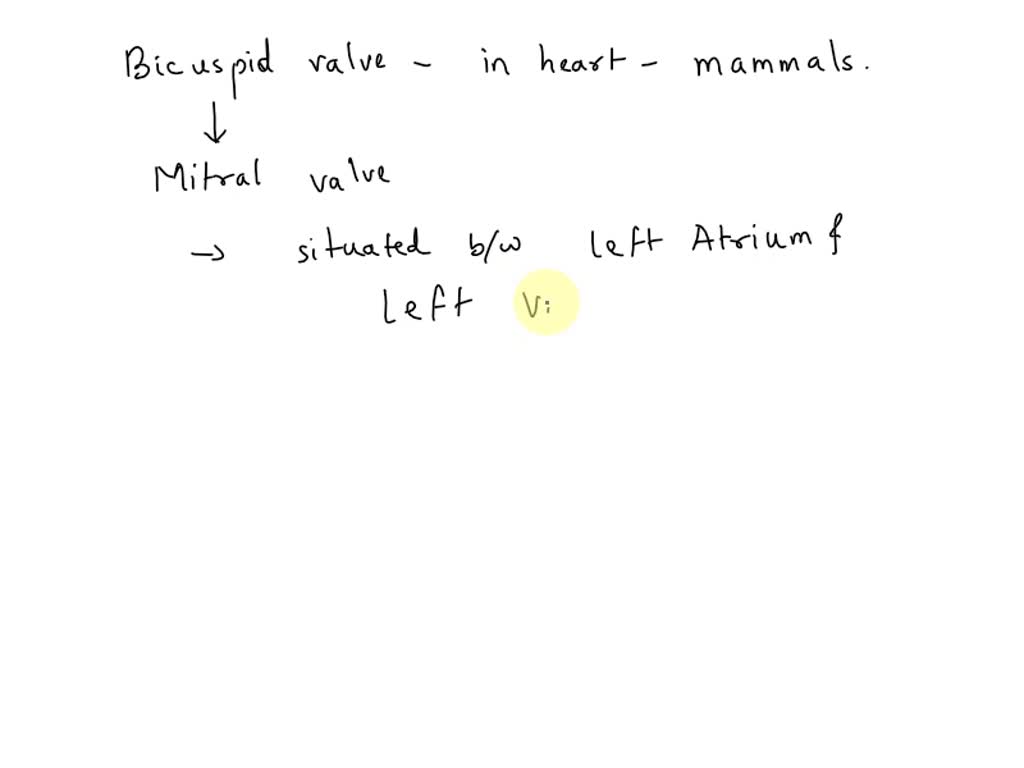 Bicuspid valve - in heart - mammals.
↓
Mitral valve
→ situated b/w left Atrium &
left Vi